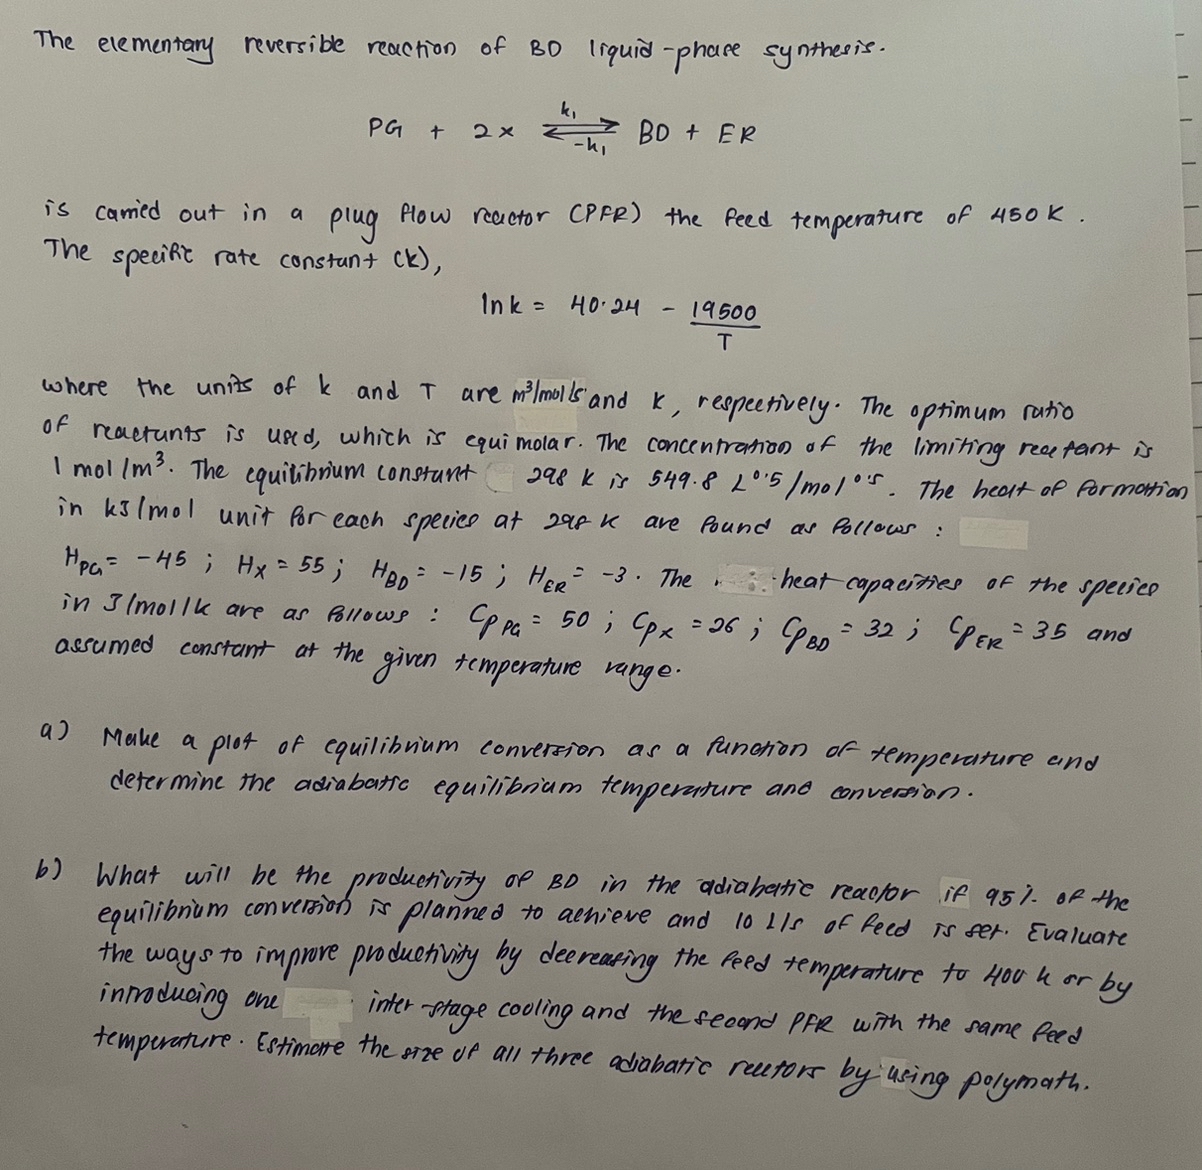 The elementary reversible reaction of BD liquid-phase synthesis.
PG + 2x ⇌ BD + ER
k1
-k1
is carried out in a plug flow reactor (PFR) the feed temperature of 450 K.
The specific rate constant (k),
ln k = 40.24 - 19500/T
where the units of k and T are m³/mol/s and K, respectively. The optimum ratio
of reactants is used, which is equimolar. The concentration of the limiting reactant is
1 mol/m³. The equilibrium constant 298 K is 549.8 L^0.5/mol^0.5. The heat of formation
in kJ/mol unit for each species at 298 K are found as follows:
H_PG = -45; H_X = 55; H_BD = -15; H_ER = -3. The heat capacities of the species
in J/mol/k are as follows: Cp_PG = 50; Cp_X = 26; Cp_BD = 32; Cp_ER = 35 and
assumed constant at the given temperature range.
a) Make a plot of equilibrium conversion as a function of temperature and
determine the adiabatic equilibrium temperature and conversion.
b) What will be the productivity of BD in the adiabatic reactor if 95% of the
equilibrium conversion is planned to achieve and 10 L/s of feed is set. Evaluate
the ways to improve productivity by decreasing the feed temperature to 400 k or by
introducing one inter-stage cooling and the second PFR with the same feed
temperature. Estimate the size of all three adiabatic reactors by using polymath.